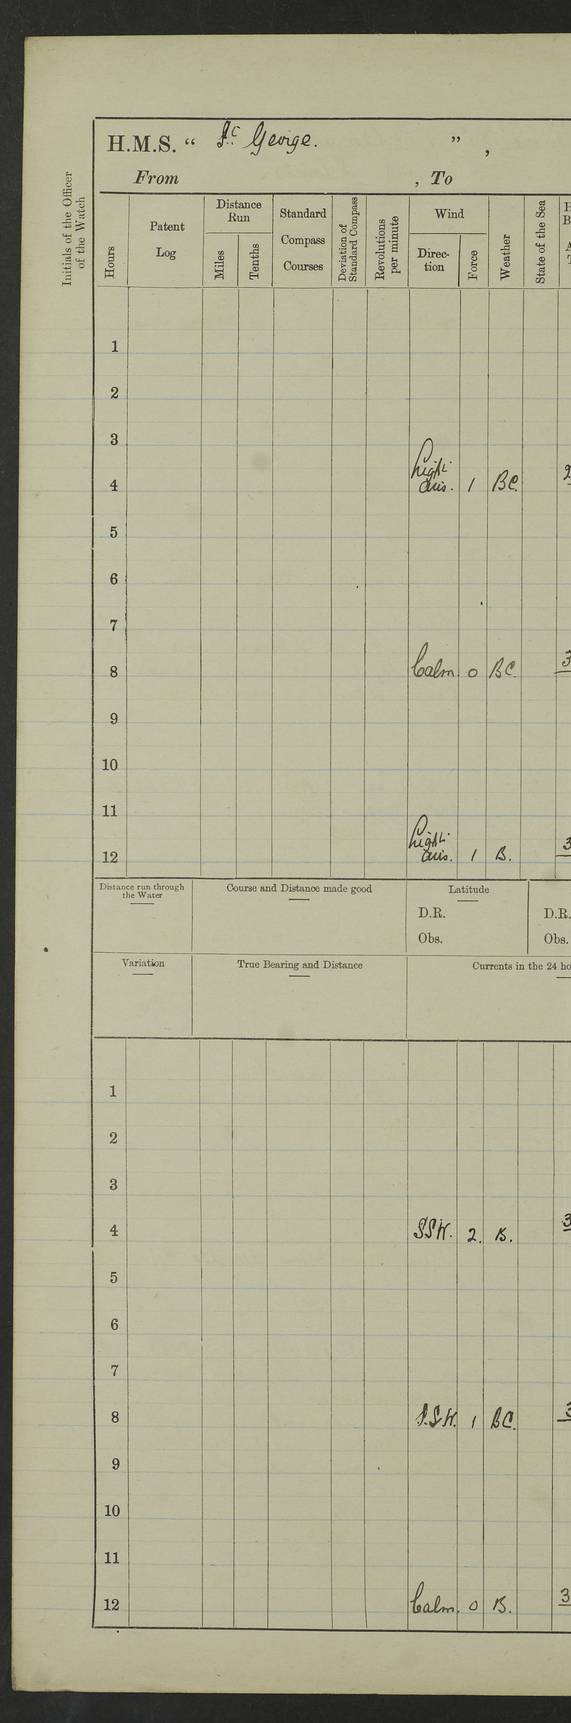 H.M.S. “ St. George. ” ,
From , To
Initials of the Officer
of the Watch
Hours
Patent
Log
Distance
Run
Miles
Tenths
Standard
Compass
Courses
Deviation of
Standard Compass
Revolutions
per minute
Wind
Direc-
tion
Force
Weather
State of the Sea
1
2
3
Light
4 airs. 1 BC.
5
6
7
8 Calm. 0 BC.
9
10
11
Light
12 airs. 1 B.
Distance run through
the Water
Course and Distance made good
Latitude
D.R. D.R.
Obs. Obs.
Variation
True Bearing and Distance
Currents in the 24 ho
1
2
3
4 SSW. 2. B.
5
6
7
8 S.S.W. 1 BC.
9
10
11
12 Calm. 0 B.